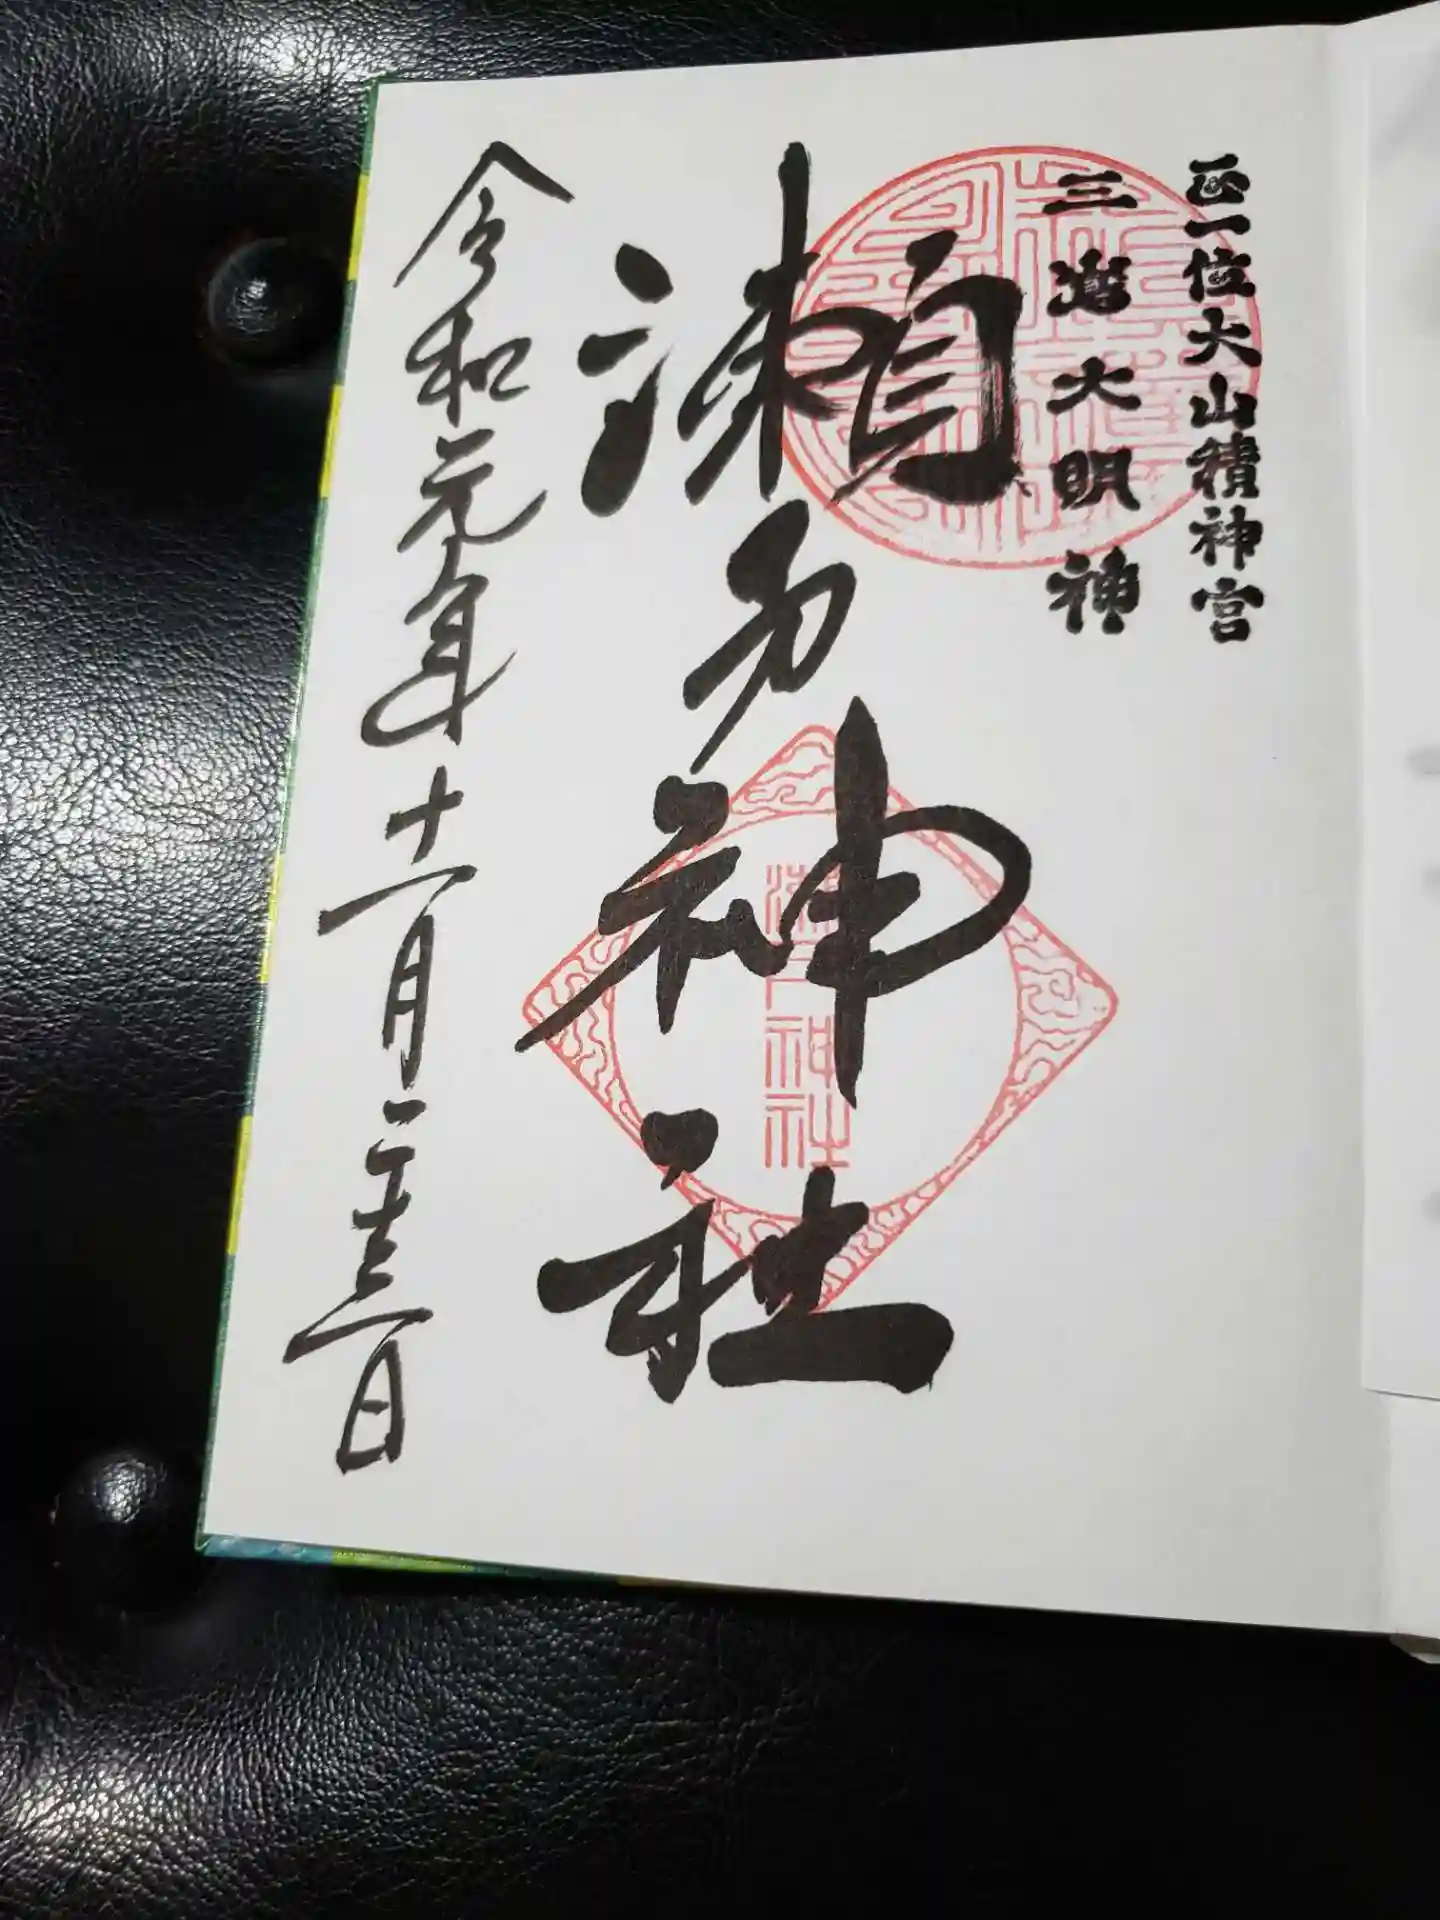 正一位大山積神宮
三嶋大明神
瀬戸神社
瀬戸神社
令和元年十一月二十三日